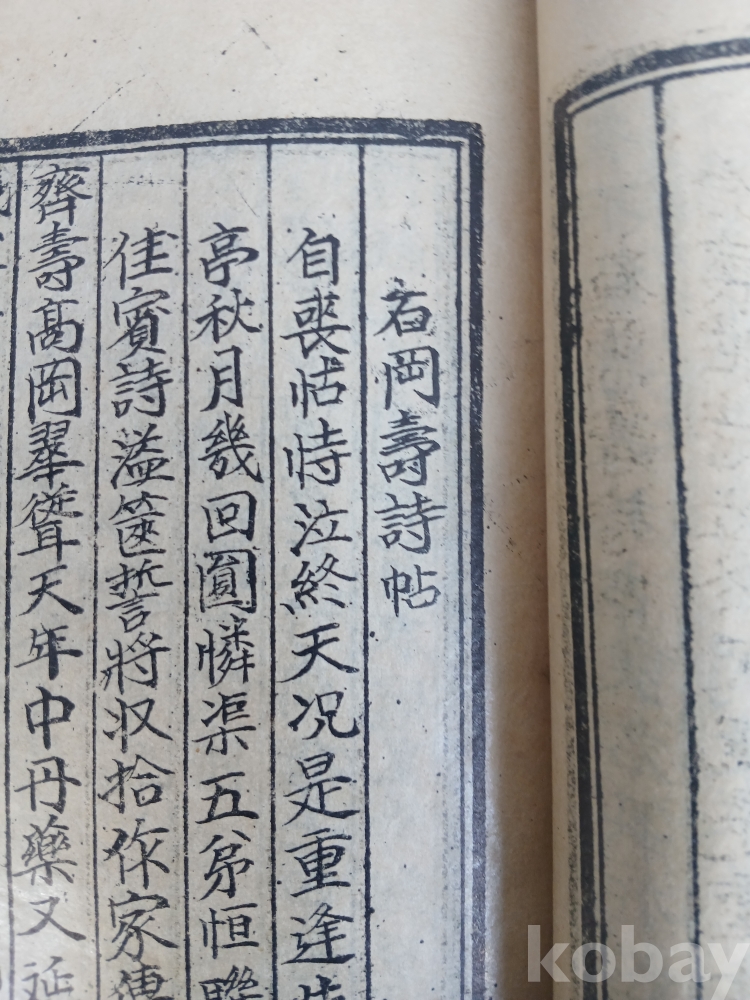 石岡壽詩帖
自喪怙恃泣終天况是重逢
亭秋月幾回圓憐渠五弟恒聯
佳賓詩溢篋誓將収拾作家傳
齊壽髙岡翠聳天年中丹藥又延
kobay